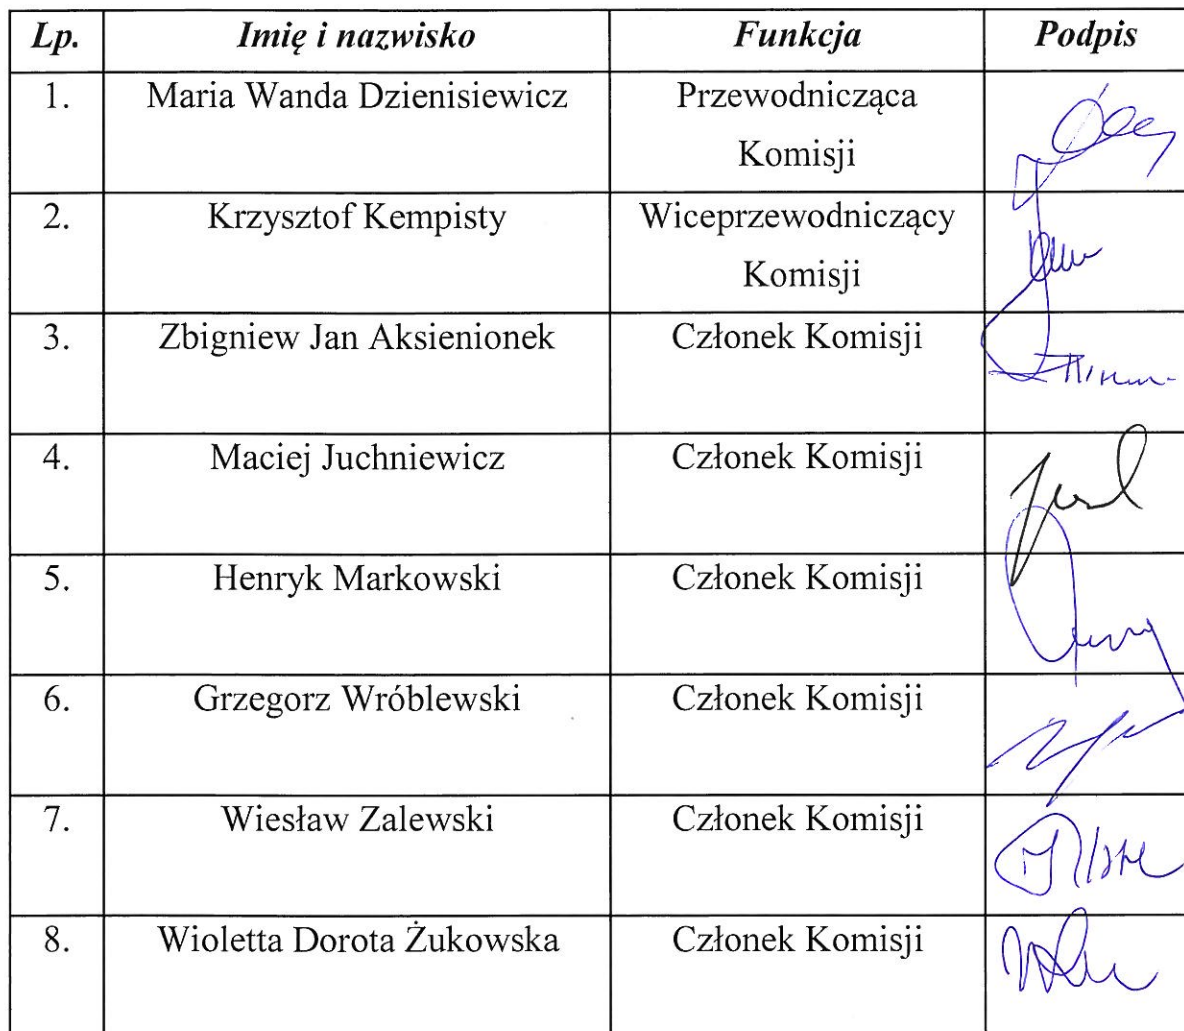 Lp. Imię i nazwisko Funkcja Podpis
1. Maria Wanda Dzienisiewicz Przewodnicząca
Komisji
2. Krzysztof Kempisty Wiceprzewodniczący
Komisji
3. Zbigniew Jan Aksienionek Członek Komisji
4. Maciej Juchniewicz Członek Komisji
5. Henryk Markowski Członek Komisji
6. Grzegorz Wróblewski Członek Komisji
7. Wiesław Zalewski Członek Komisji
8. Wioletta Dorota Żukowska Członek Komisji